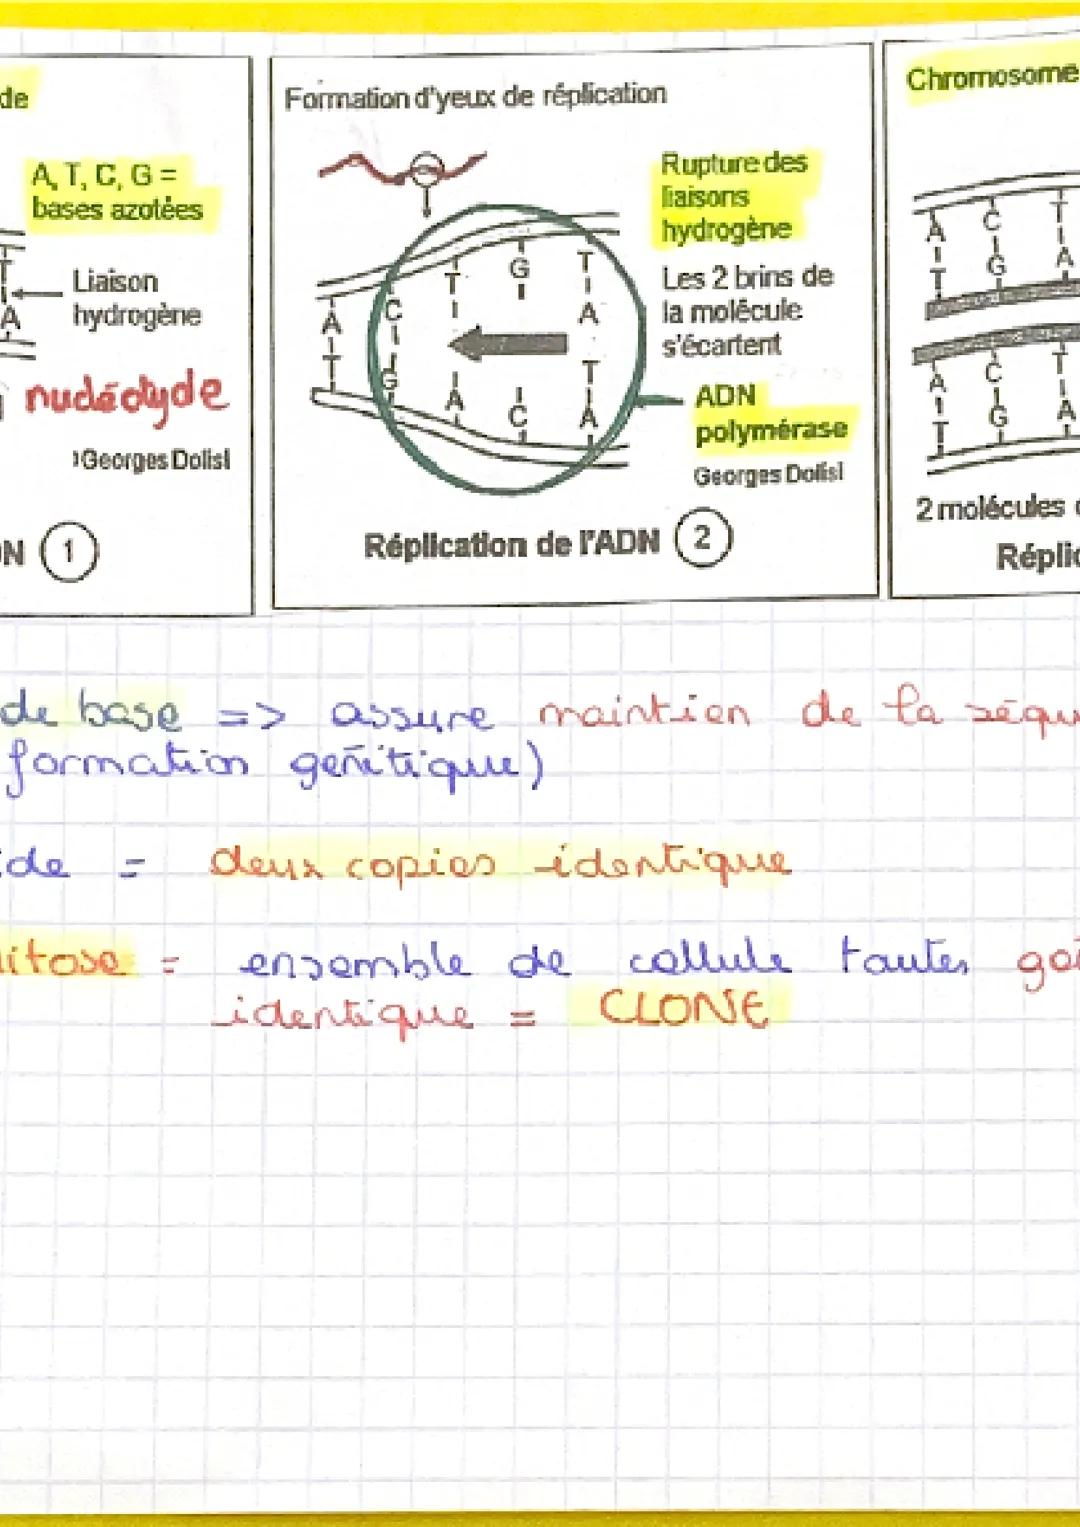 de
A, T, C, G =
bases azotées
T
A
Liaison
hydrogène
nucléotyde
Georges Dolisi
ON 1
Formation d'yeux de réplication
A
T
C
G
T
A
G
C
T
A
T
A
Rupture des
liaisons
hydrogène
Les 2 brins de
la molécule
s'écartent
ADN
polymérase
Georges Dolisi
Réplication de l'ADN 2
Chromosome
A
T
C
G
T
A
A
T
C
G
T
A
2 molécules
Réplic
de base => assure maintien de la séqu
formation génétique)
ide = deux copies identique
mitose = ensemble de cellule toutes gé
identique = CLONE